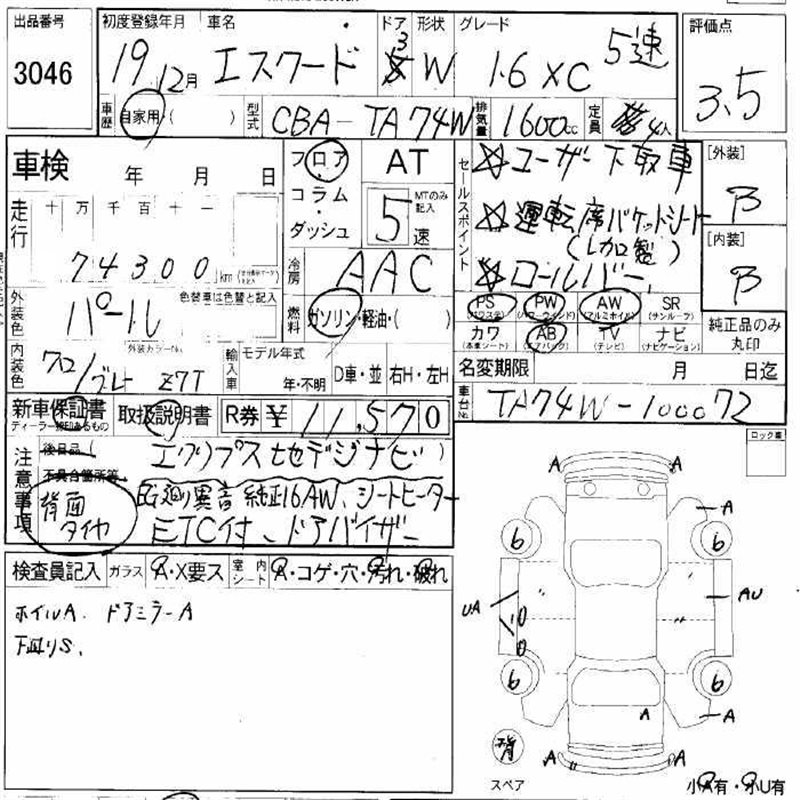 出品番号 初度登録年月 車名 ドア 形状 グレード 評価点
3046 19 12月 エスクード 3 W 1.6 XC 5速 3.5
車歴 自家用・( ) 型式 CBA-TA74W 排気量 1600cc 定員 4人
車検 年 月 日
フロア AT
コラム・ダッシュ 5速 MTのみ記入
セールスポイント
☆ユーザー下取車
☆運転席バケットシート
(レカロ製)
☆ロールバー
[外装] B
[内装] B
走行 十 万 千 百 十 一
74300 km
冷房 AAC
外装色 パール 色替車は色替と記入
外装カラーNo. Z7T
燃料 ガソリン・軽油・( )
PS (パワステ) PW (パワーウインド) AW (アルミホイル) SR (サンルーフ)
カワ (本革シート) AB (エアバック) TV (テレビ) ナビ (ナビゲーション)
純正品のみ丸印
内装色 クロ/グレー
輸入車 モデル年式 年・不明 D車・並 右H・左H
名変期限 月 日迄
新車保証書 取扱説明書 R券 ¥ 11,570
車台No. TA74W-100072
注意事項
後日品(
エクリプス地デジナビ)
不具合箇所等、
異音 純正16AW、シートヒーター
背面タイヤ
ETC付、ドアバイザー
ロック車
検査員記入 ガラス A・X要ス 室内シート A・コゲ・穴・汚れ・破れ
ホイルA. ドアミラーA
下廻りS.
A A
A
6 6
UA AU
6 6
A A
背
A A
スペア 小A有・小U有